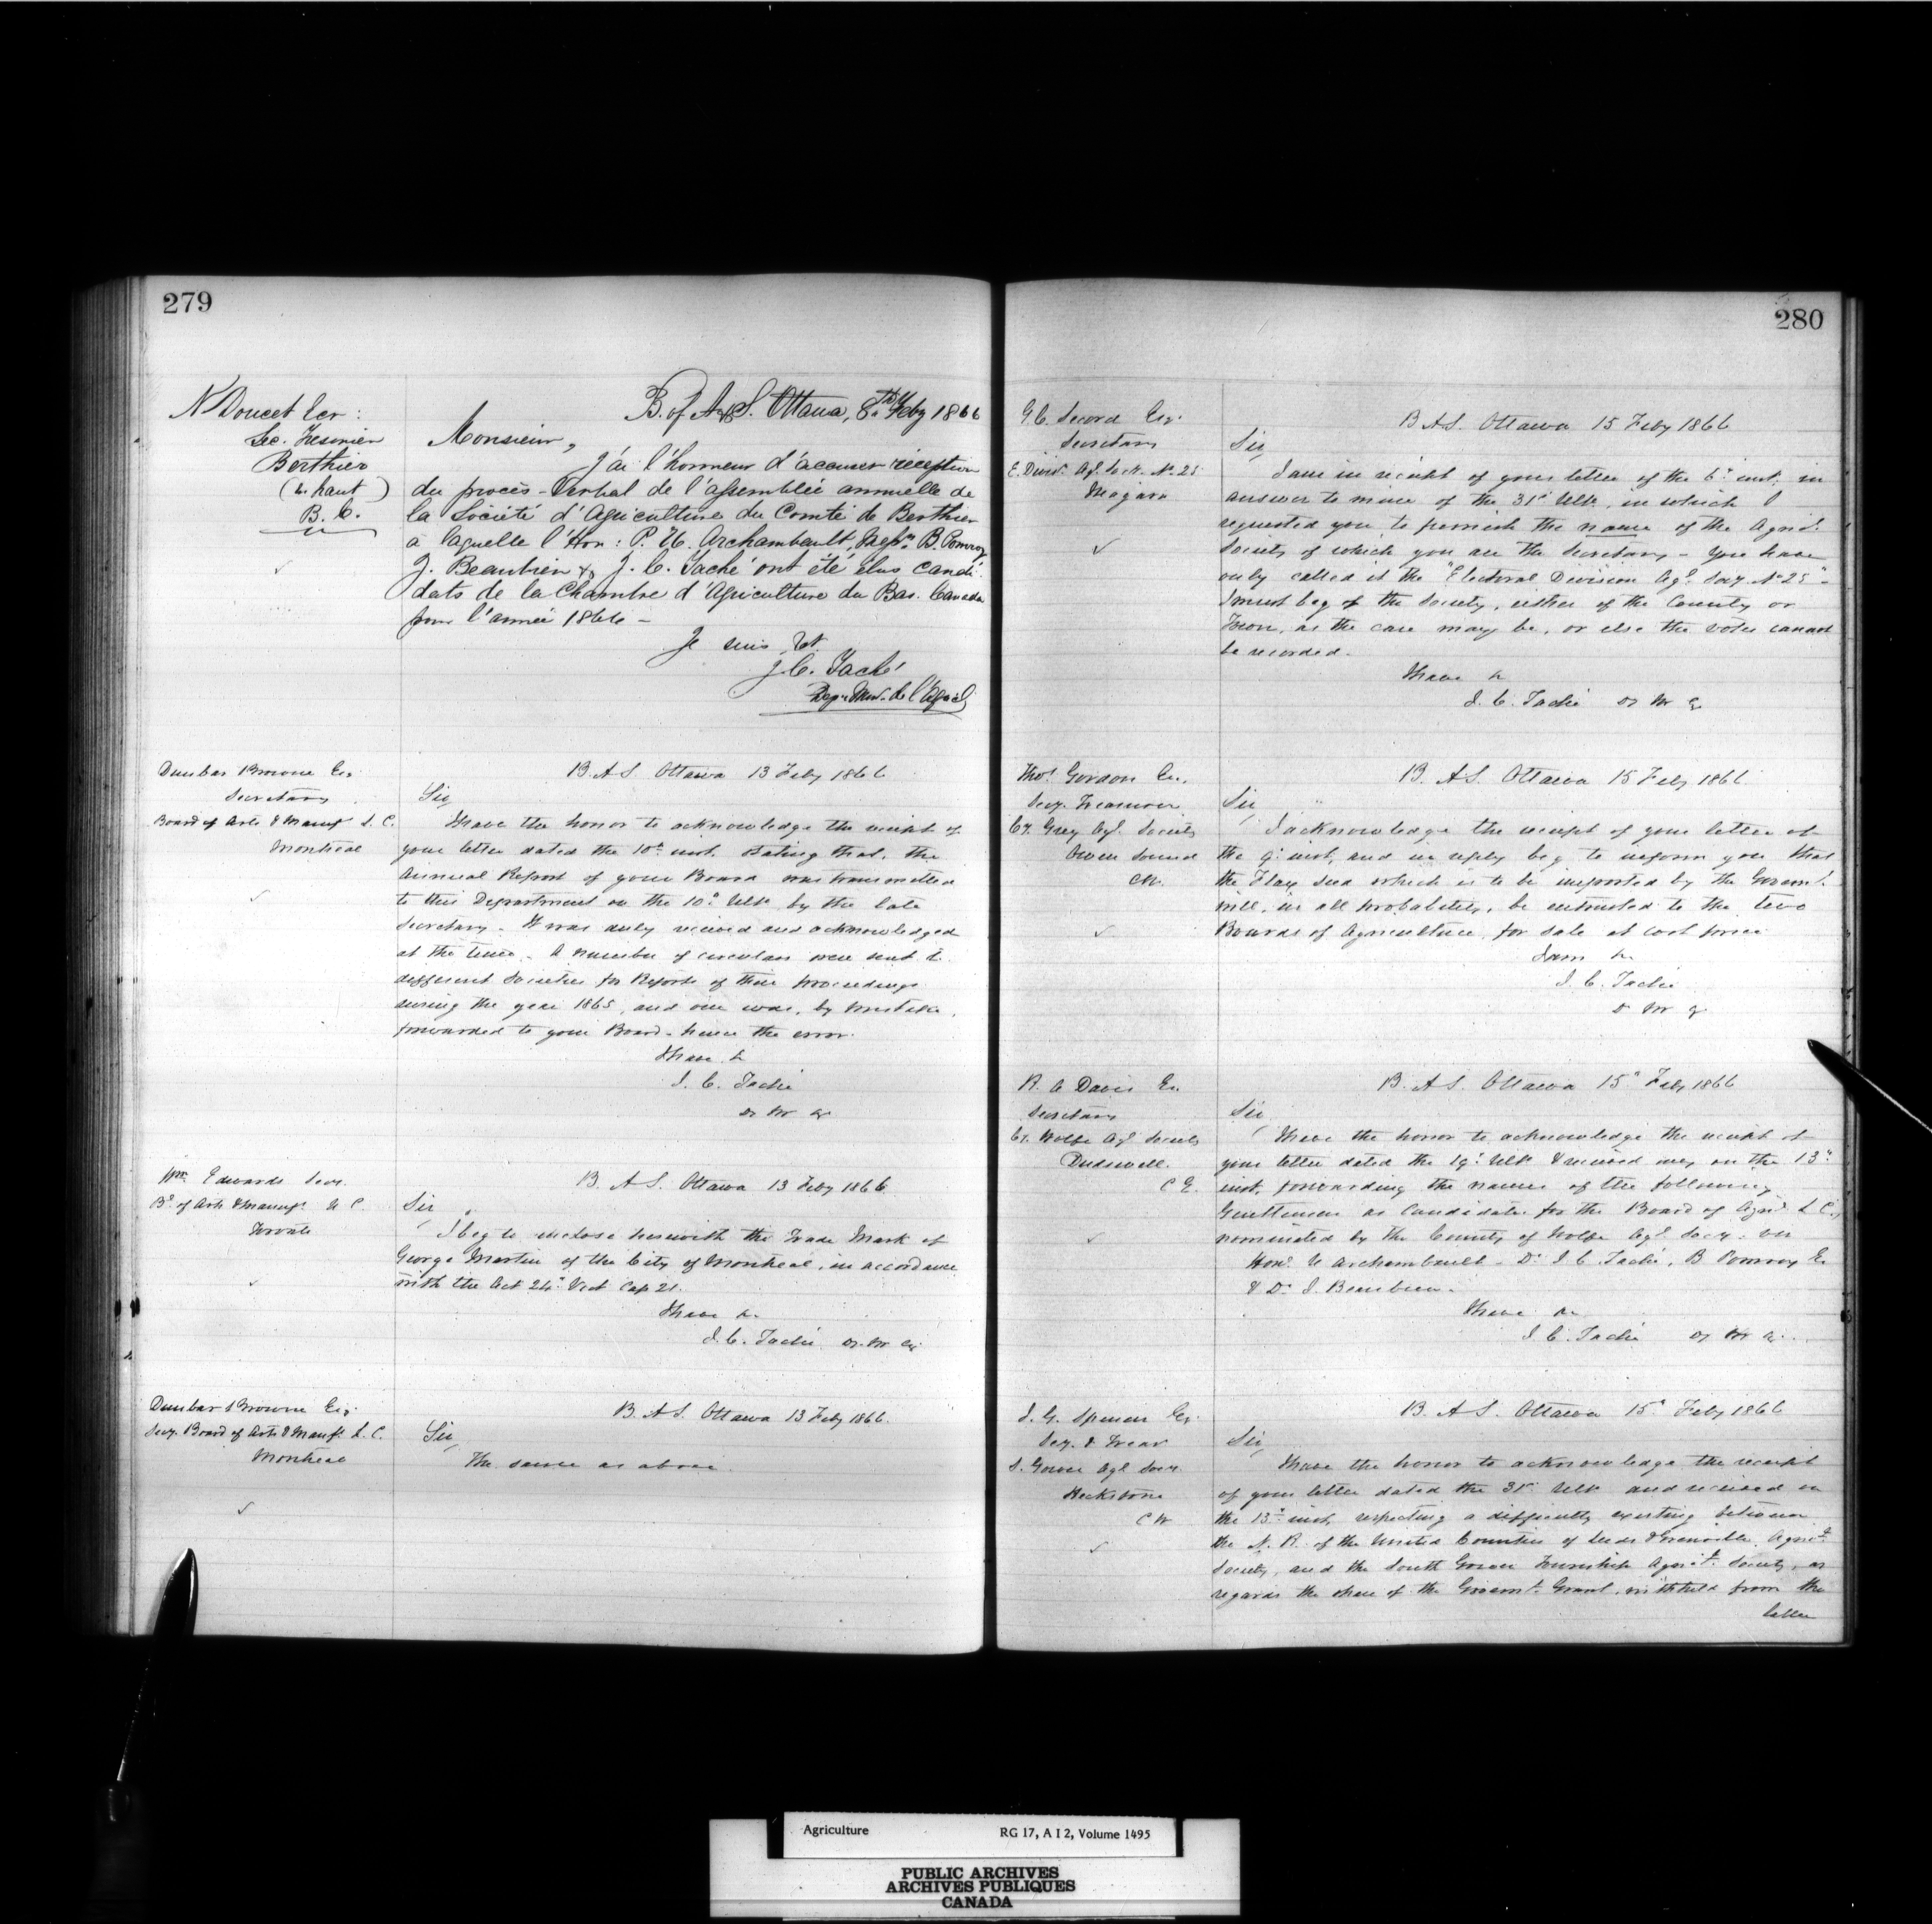 279
N Doucet Ecr:
Sec. Tresorier
Berthier
(h. haut)
B. C.
B. of A & S. Ottawa, 8th Feby 1866
Monsieur,
J'ai l'honneur d'accuser réception
du procès-Verbal de l'assemblée annuelle de
la Société d'Agriculture du Comté de Berthier
à laquelle l'Hon: P. U. Archambault, B. Pomroy
J. Beaubien & J. C. Taché ont été élus candi-
dats de la Chambre d'Agriculture du Bas. Canada
pour l'année 1866 -
Je suis &t
J. C. Taché
Dep. Min. de l'Agricl
Dunbar Browne Esq
Secretary
Board of Arts & Manufs L. C.
Montreal
B. A S Ottawa 13 Feby 1866
Sir
I have the honor to acknowledge the receipt of
your letter dated the 10th inst. stating that, the
Annual Report of your Board was transmitted
to this Department on the 10th Ulto by the late
Secretary. It was duly received and acknowledged
at the time. A number of circulars were sent to
different Societies for Reports of their proceedings
during the year 1865, and one was, by mistake,
forwarded to your Board - hence the error.
I have &
J. C. Taché
D M A
Wm Edwards Secy.
Bd of Arts & Manufs U C
Toronto
B. A S. Ottawa 13 Feby 1866
Sir
I beg to enclose herewith the Trade Mark of
George Martin of the City of Montreal, in accordance
with the Act 24th Vict Cap 21.
I have &
J. C. Taché D. M A
Dunbar Browne Esq.
Secy. Board of Arts & Manfs L. C.
Montreal
B. A S. Ottawa 13 Feby 1866
Sir,
The same as above.
280
G. C. Secord Esq.
Secretary
E. Divn. Agl. Sock. No 25
Niagara
B. A S. Ottawa 15 Feby 1866
Sir,
I am in receipt of your letter of the 6th inst. in
answer to mine of the 31st Ulto, in which I
requested you to furnish the name of the Agricl
Society of which you are the Secretary - You have
only called it the "Electoral Division Agl. Socy. No 25" -
I must beg of the Society, either of the County or
Town, as the case may be, or else the votes cannot
be recorded.
I have &
J. C. Taché D M A
Thos Gordon Esq.
Secy. Treasurer
Cy. Grey Agl. Society
Owen Sound
CW.
B. A S. Ottawa 15 Feby 1866
Sir
I acknowledge the receipt of your letter of
the 9th inst, and in reply beg to inform you that
the Flax Seed which is to be imported by the Governmt.
will, in all probability, be entrusted to the two
Boards of Agriculture, for sale at cost price
I am &
J. C. Taché
D M A
R. A Davis Esq
Secretary
Cy. Wolfe Agl Society
Dudswell.
C E.
B. A S. Ottawa 15th Feby 1866
Sir
I have the honor to acknowledge the receipt of
your letter dated the 19th Ulto & received only on the 13th
inst, forwarding the names of the following
Gentlemen as Candidates for the Board of Agricl. L C.,
nominated by the County of Wolfe Agl. Socy. viz
Honl. U Archambault - Dr J C. Taché, B Pomroy Esq
& Dr. J. Beaubien.
I have &
J C. Taché D M A.
J. G. Spencer Esq
Secy. & Treas
S. Gower Agl Socy.
Heckstone
C W
B. A S. Ottawa 15th Feby 1866
Sir,
I have the honor to acknowledge the receipt
of your letter dated the 31st Ulto and received on
the 13th inst, respecting a difficulty existing between
the N. R. of the United Counties of Leeds & Grenville Agricl
Society, and the South Gower Township Agricl. Society, as
regards the share of the Governmt. Grant, withheld from the
latter
Agriculture RG 17, A I 2, Volume 1495
PUBLIC ARCHIVES
ARCHIVES PUBLIQUES
CANADA